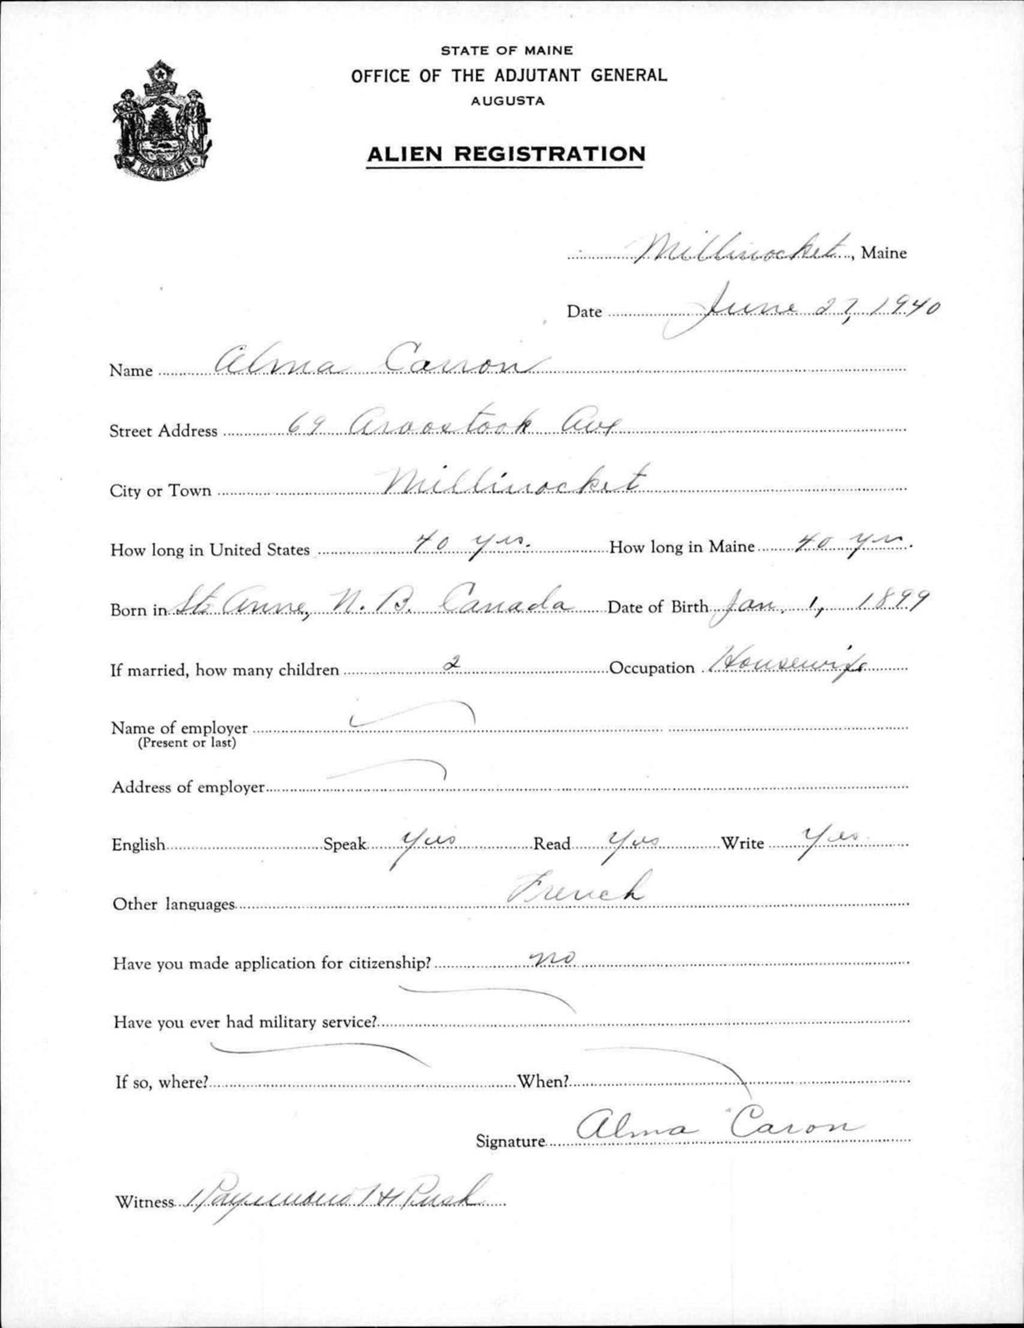 STATE OF MAINE
OFFICE OF THE ADJUTANT GENERAL
AUGUSTA
ALIEN REGISTRATION
MAINE
Millinocket, Maine
Date June 27, 1940
Name Alma Caron
Street Address 69 Aroostook Ave
City or Town Millinocket
How long in United States 40 yrs. How long in Maine 40 yrs.
Born in St. Anne, N. B. Canada Date of Birth Jan. 1, 1899
If married, how many children 2 Occupation Housewife
Name of employer
(Present or last)
Address of employer
English Speak Yes Read Yes Write Yes
Other languages French
Have you made application for citizenship? no
Have you ever had military service?
If so, where? When?
Signature Alma Caron
Witness Raymond H Rush